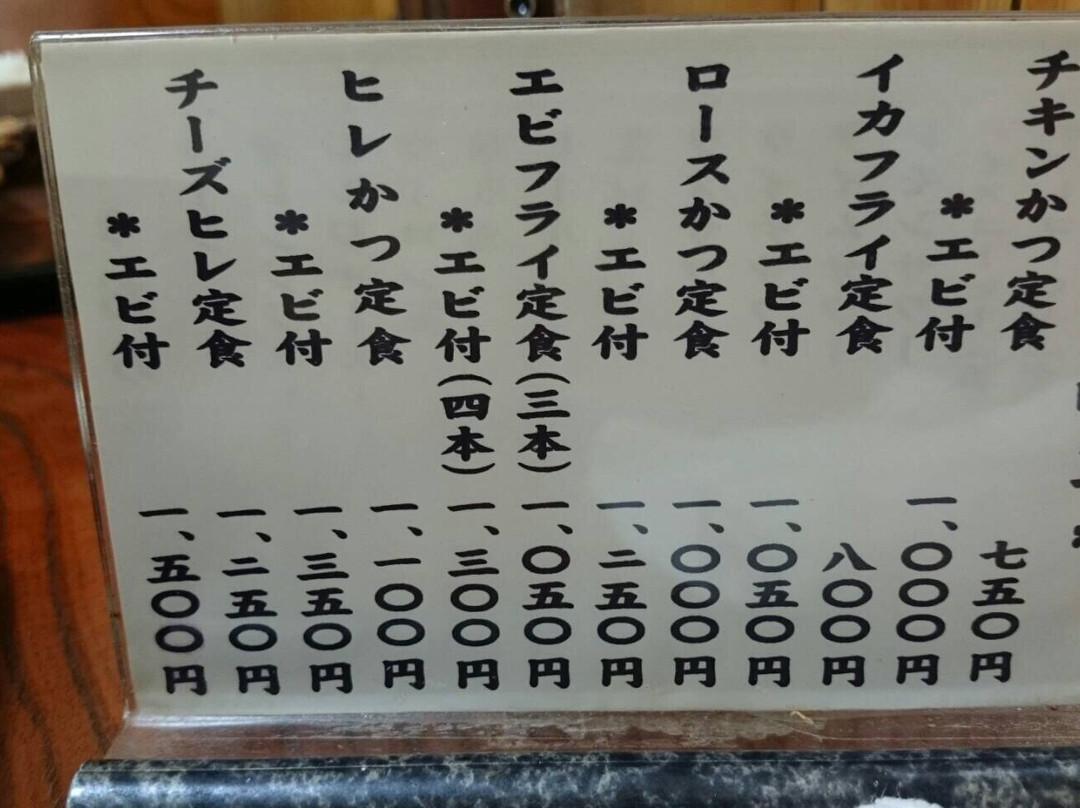 チキンかつ定食 七五〇円
*エビ付 一、〇〇〇円
イカフライ定食 八〇〇円
*エビ付 一、〇五〇円
ロースかつ定食 一、〇〇〇円
*エビ付 一、二五〇円
エビフライ定食(三本) 一、〇五〇円
*エビ付(四本) 一、三〇〇円
ヒレかつ定食 一、一〇〇円
*エビ付 一、三五〇円
チーズヒレ定食 一、二五〇円
*エビ付 一、五〇〇円